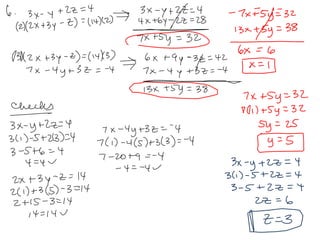 6. 3x-y+2z=4
(2)(2x+3y-z)=(14)(2)
3x-y+2z=4
4x+6y-2z=28
7x+5y=32
(3)(2x+3y-z)=(14)(3)
7x-4y+3z=-4
6x+9y-3z=42
7x-4y+3z=-4
13x+5y=38
-7x+5y=32
13x+5y=38
6x=6
x=1
7x+5y=32
5y=25
y=5
3x-y+2z=4
3(1)-5+2z=4
3-5+2z=4
2z=6
z=3
checks
3x-y+2z=4
3(1)-5+2(3)=4
3-5+6=4
4=4✓
2x+3y-z=14
2(1)+3(5)-3=14
2+15-3=14
14=14✓
7x-4y+3z=-4
7(1)-4(5)+3(3)=-4
7-20+9=-4
-4=-4✓